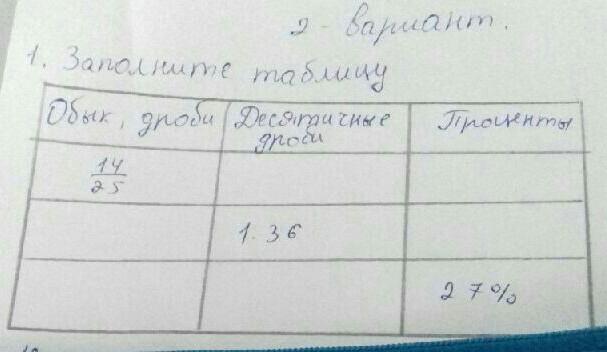 2 - вариант.
1. Заполните таблицу
Обык, дроби Десятичные дроби Проценты
14/25
1.36
27%